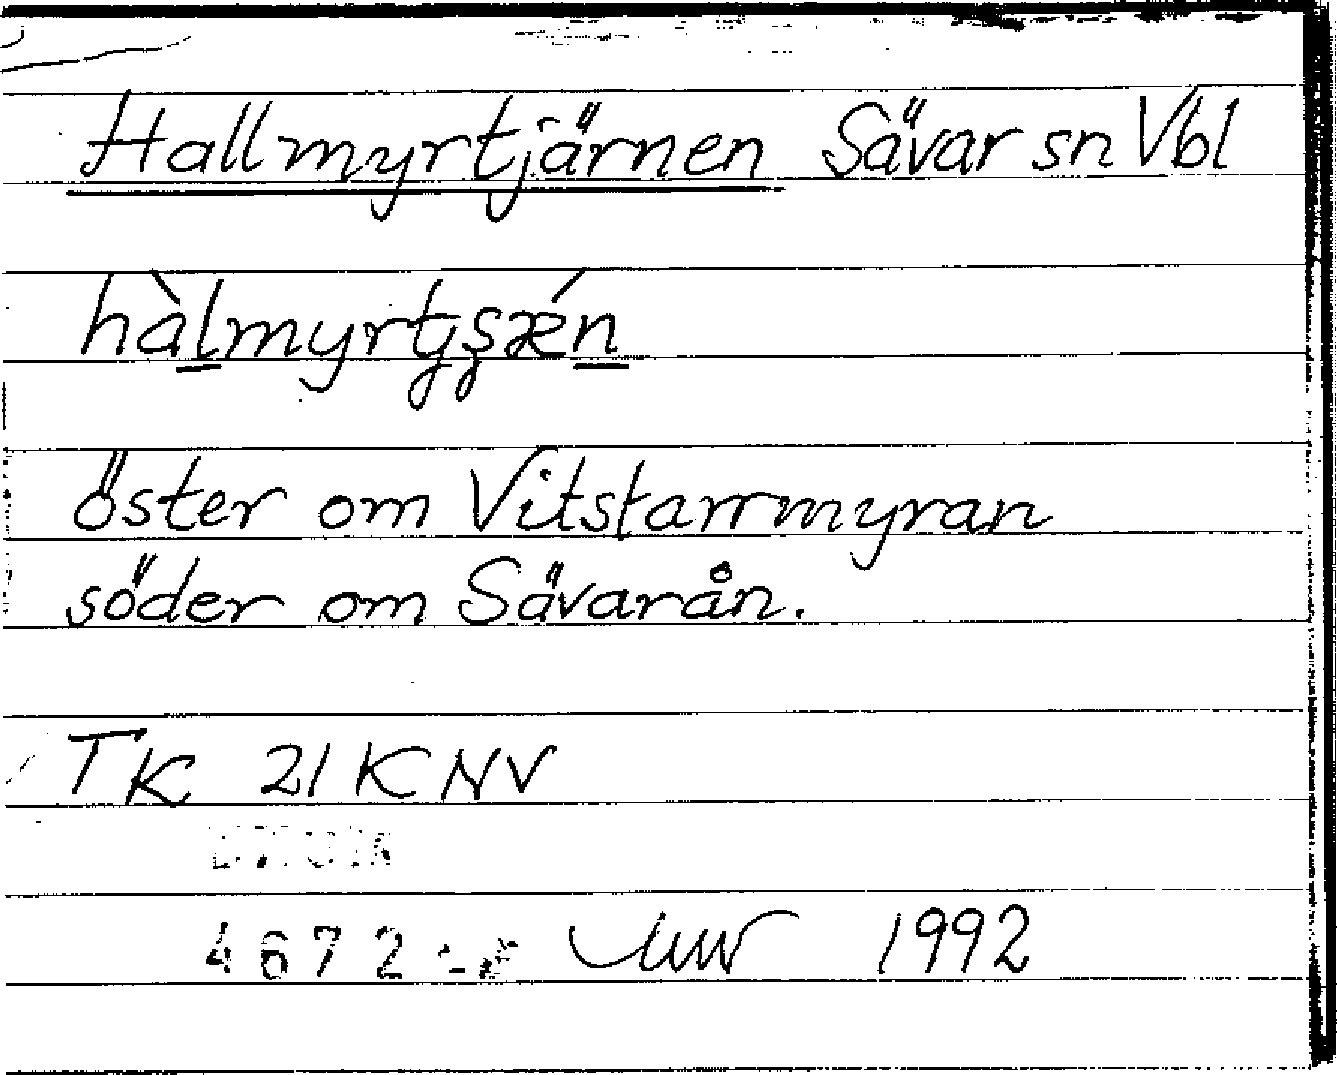 Hallmyrtjärnen Sävar sn Vbl
hàlmyrtȿǽn
öster om Vitstarrmyran
söder om Sävarån.
TK 21 K NV
4672
1992